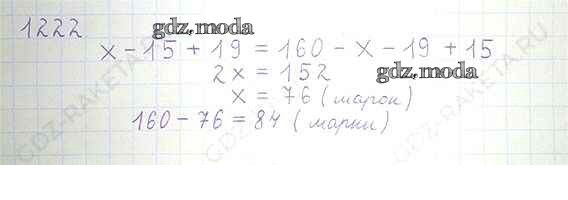 1222 gdz.moda
x - 15 + 19 = 160 - x - 19 + 15
2x = 152 gdz.moda
x = 76 (марок)
160 - 76 = 84 (марки)
GDZ-RAKETA.RU
GDZ-RAKETA.RU